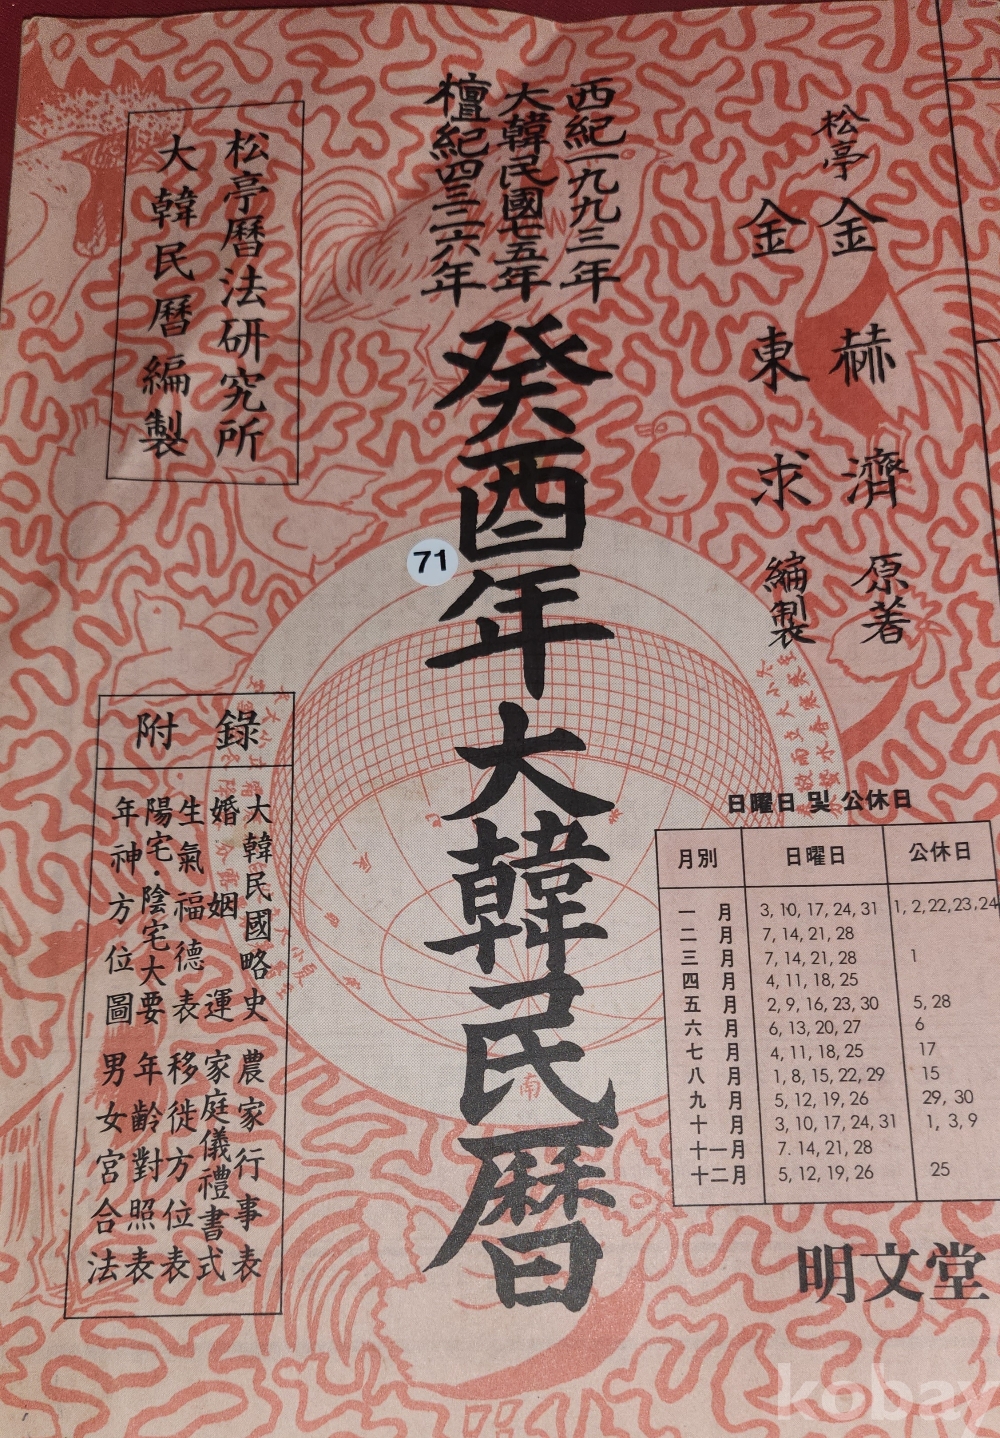 松亭 金赫濟 原著
金東求 編製
西紀一九九三年
大韓民國七五年
檀紀四三二六年
癸酉年大韓民曆
松亭曆法研究所
大韓民曆編製
71
附錄
大韓民國略史
婚姻運
生氣福德表
陽宅·陰宅大要
年神方位圖
農家行事表
家庭儀禮書式
移徙方位表
年齡對照表
男女宮合法
日曜日 및 公休日
月別 日曜日 公休日
一月 3, 10, 17, 24, 31 1, 2, 22, 23, 24
二月 7, 14, 21, 28
三月 7, 14, 21, 28 1
四月 4, 11, 18, 25
五月 2, 9, 16, 23, 30 5, 28
六月 6, 13, 20, 27 6
七月 4, 11, 18, 25 17
八月 1, 8, 15, 22, 29 15
九月 5, 12, 19, 26 29, 30
十月 3, 10, 17, 24, 31 1, 3, 9
十一月 7. 14, 21, 28
十二月 5, 12, 19, 26 25
明文堂
南
kobay